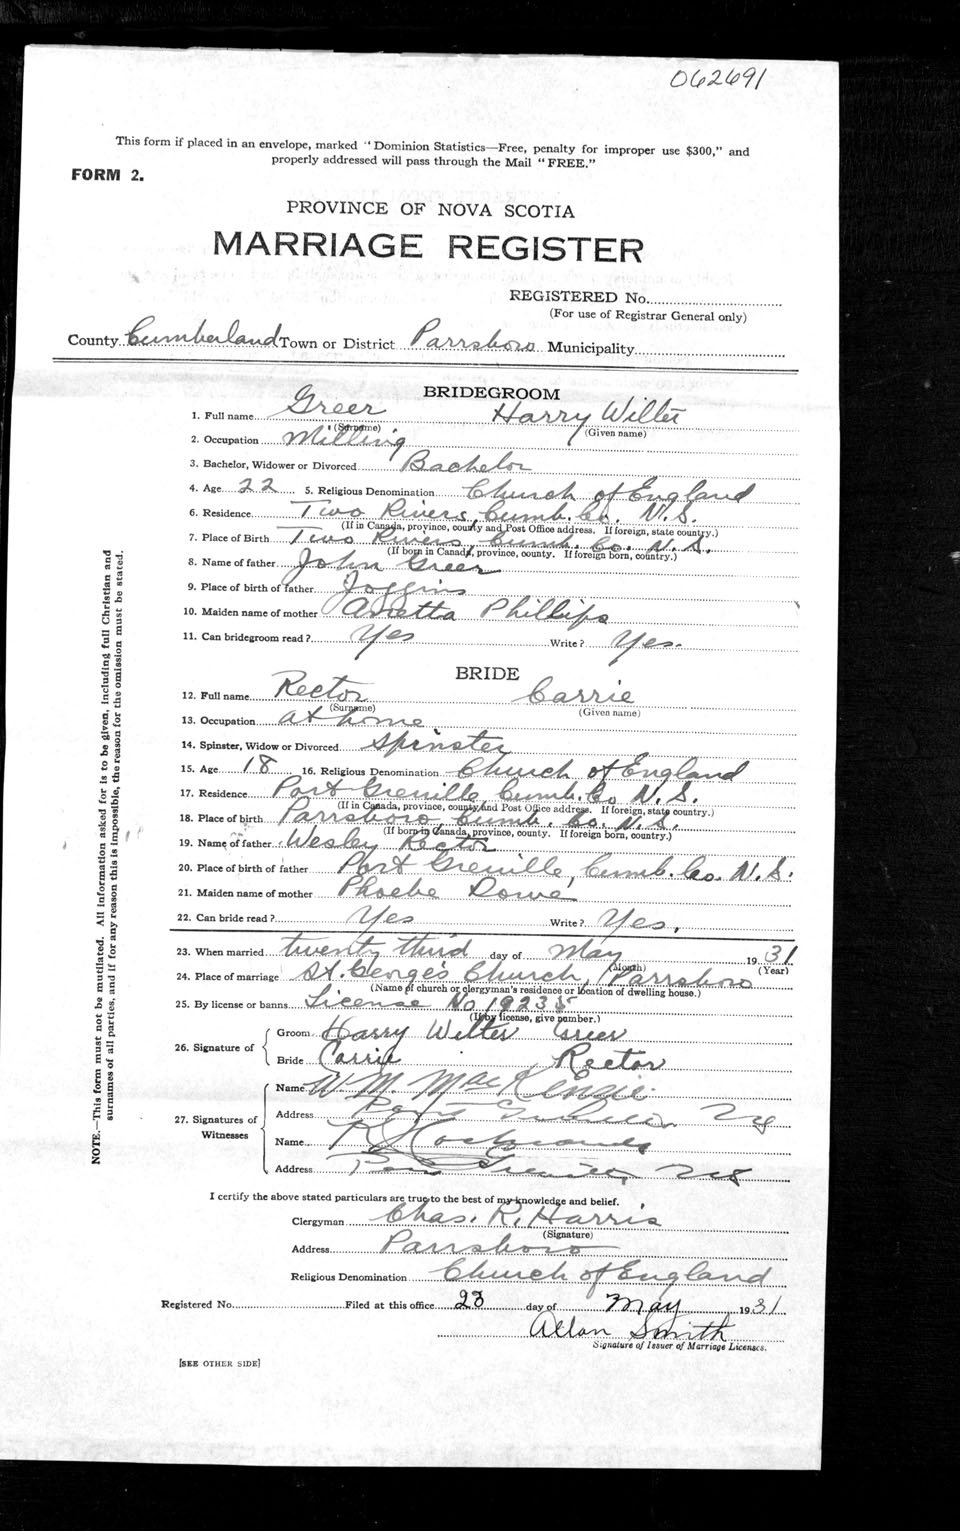 062691
This form if placed in an envelope, marked "Dominion Statistics—Free, penalty for improper use $300," and
properly addressed will pass through the Mail "FREE."
FORM 2.
PROVINCE OF NOVA SCOTIA
MARRIAGE REGISTER
REGISTERED No.
(For use of Registrar General only)
County Cumberland Town or District Parrsboro Municipality
BRIDEGROOM
1. Full name Greer Harry Wilter
(Surname) (Given name)
2. Occupation Milling
3. Bachelor, Widower or Divorced Bachelor
4. Age 22 5. Religious Denomination Church of England
6. Residence Two Rivers, Cumb. Co. N.S.
(If in Canada, province, county and Post Office address. If foreign, state country.)
7. Place of Birth Two Rivers, Cumb. Co. N.S.
(If born in Canada, province, county. If foreign born, country.)
8. Name of father John Greer
9. Place of birth of father Joggins
10. Maiden name of mother Phillips
11. Can bridegroom read? Yes Write? Yes.
BRIDE
12. Full name Rector Carrie
(Surname) (Given name)
13. Occupation at home
14. Spinster, Widow or Divorced Spinster
15. Age 18 16. Religious Denomination Church of England
17. Residence Port Greville, Cumb. Co N.S.
(If in Canada, province, county and Post Office address. If foreign, state country.)
18. Place of birth Parrsboro, Cumb. Co. N.S.
(If born in Canada, province, county. If foreign born, country.)
19. Name of father Wesley Rector
20. Place of birth of father Port Greville, Cumb. Co. N.S.
21. Maiden name of mother Phoebe Dowe
22. Can bride read? Yes Write? Yes.
23. When married twenty third day of May 1931
(Month) (Year)
24. Place of marriage St. George's Church, Parrsboro
(Name of church or clergyman's residence or location of dwelling house.)
25. By license or banns License No 19235
(If by license, give number.)
26. Signature of
Groom Harry Wilter Greer
Bride Carrie Rector
27. Signatures of
Witnesses
Name W. M. MacKenzie
Address Port Greville NS
Name
Address Port Greville NS
I certify the above stated particulars are true to the best of my knowledge and belief.
Clergyman Chas. R. Harris
(Signature)
Address Parrsboro
Religious Denomination Church of England
Registered No. Filed at this office 23 day of May 1931
Allan Smith
Signature of Issuer of Marriage Licenses.
[SEE OTHER SIDE]
NOTE.—This form must not be mutilated. All information asked for is to be given, including full Christian and
surnames of all parties, and if for any reason this is impossible, the reason for the omission must be stated.